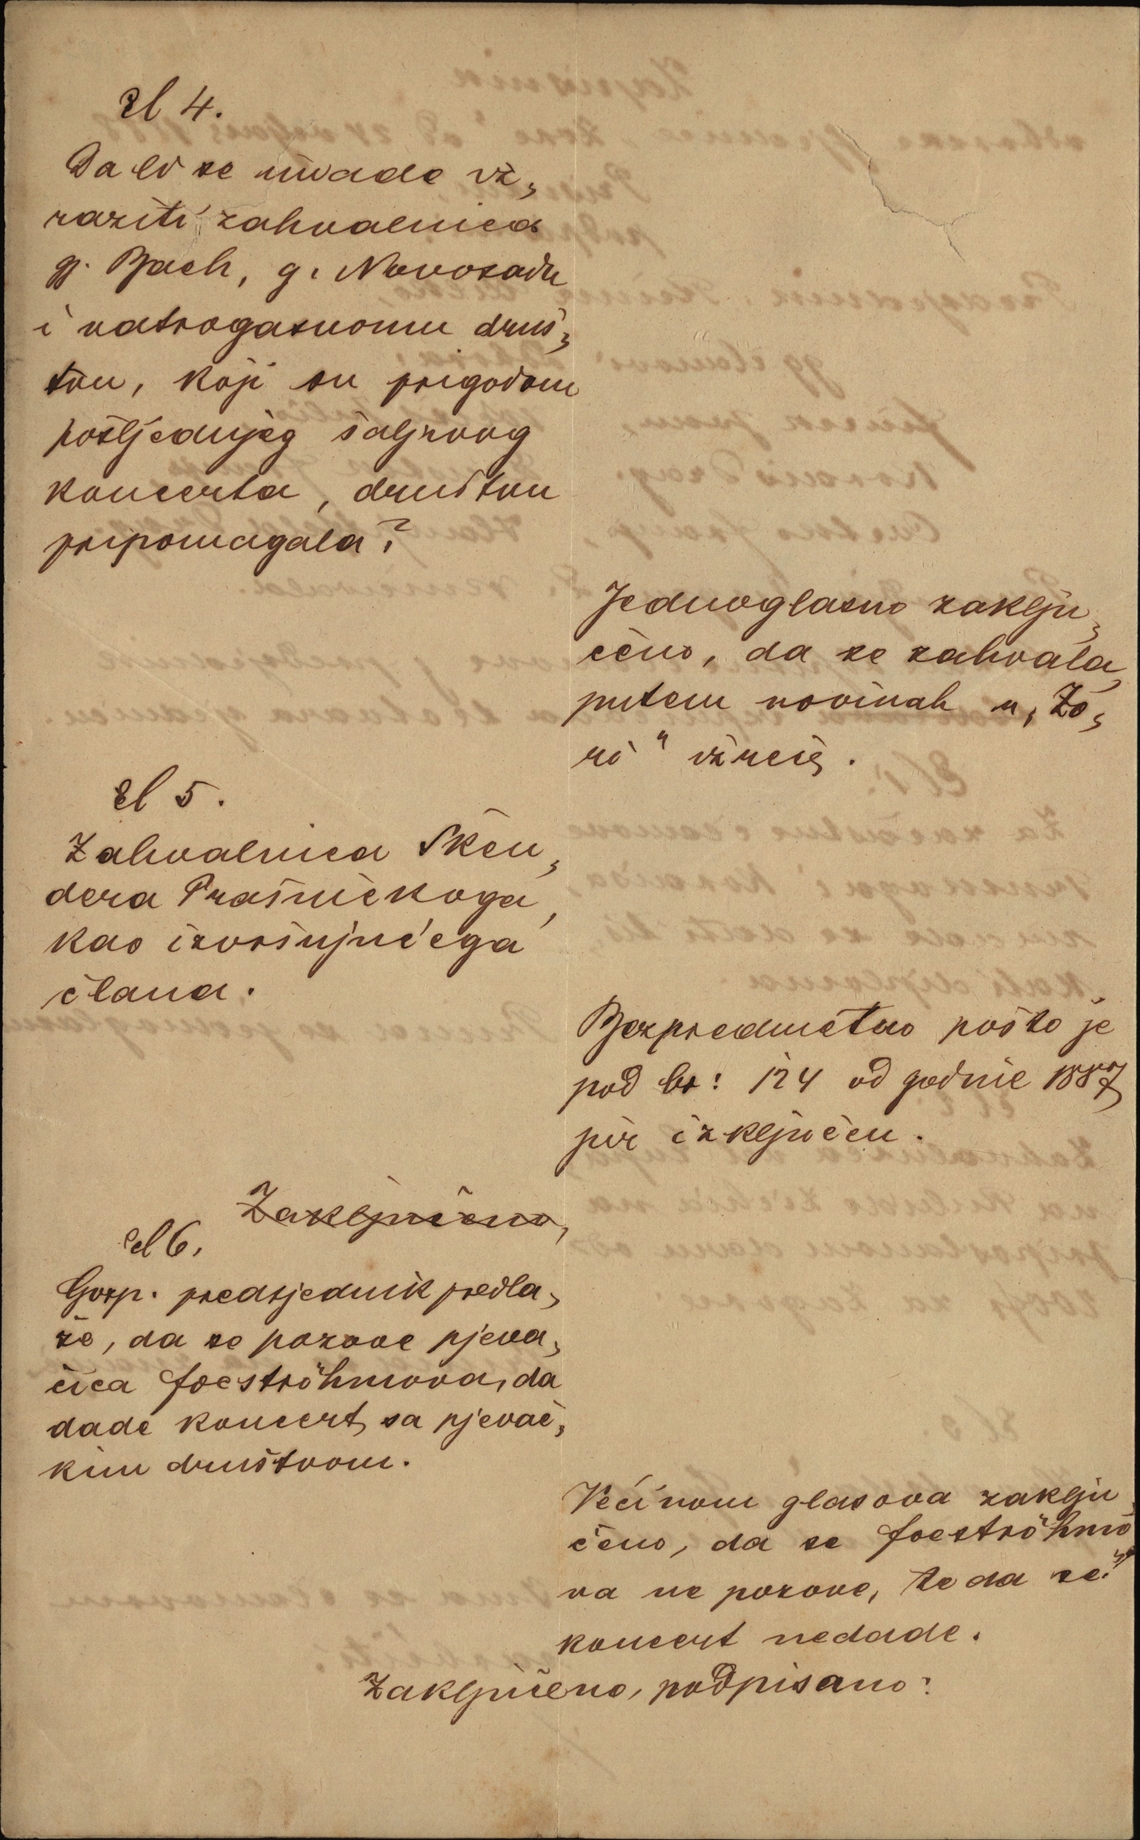 čl 4.
Da li se imade iz„
raziti zahvalnica
gj. Bach, g. Novosadu
i vatrogasnomu druš„
tvu, koji su prigodom
posljednjeg šaljivog
koncerta, društvu
pripomagala?
Jednoglasno zaklju„
čeno, da se zahvala
putem novinah u „Zo„
ri" izreče.
čl 5.
Zahvalnica Sken„
dera Prašničkoga,
kao izvršujućega
člana.
Bezpredmetno pošto je
pod br: 124 od godine 1887
jur izključen.
Zaključeno,
čl 6.
Gosp. predsjednik predla„
že, da se pozove pjeva„
čica foeströhmova, da
dade koncert sa pjevač„
kim društvom.
Većinom glasova zaklju„
čeno, da se foeströhmo„
va ne pozove, te da se
koncert nedade.
Zaključeno, podpisano: